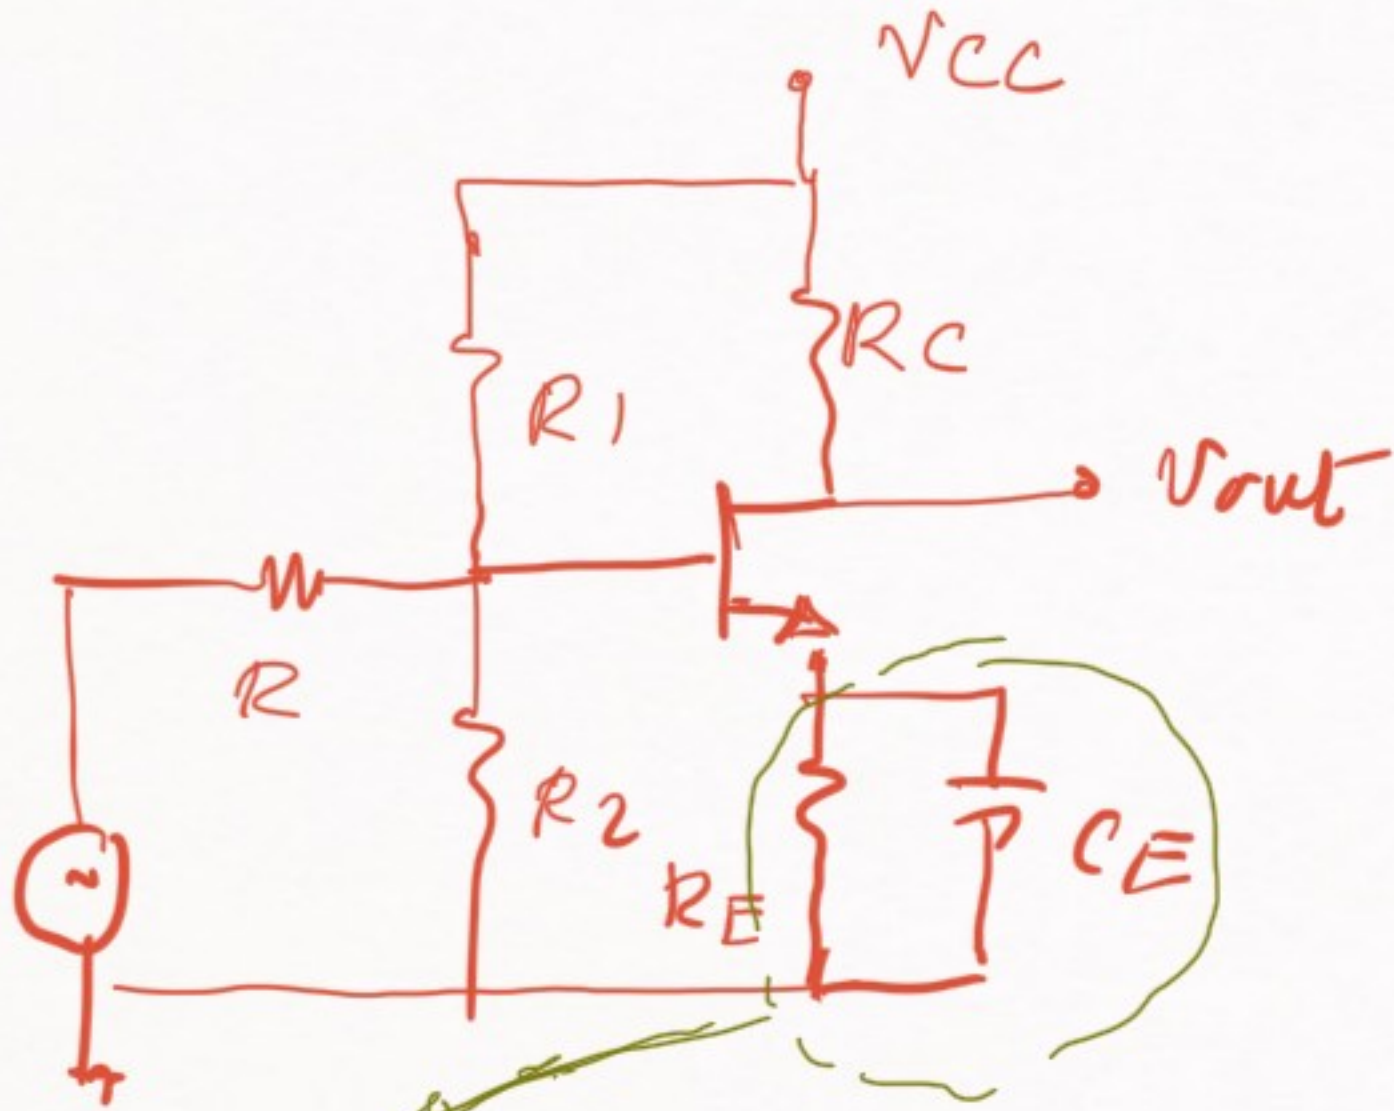 VCC
RC
R1
Vout
R
R2
CE
RE